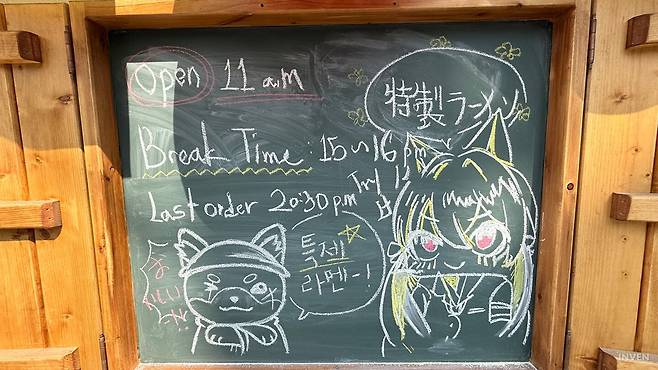 Open 11 am
Break Time : 15~16 pm
Last order 20:30 p.m
Try it
特製ラーメン
특제
라멘~!
INVEN